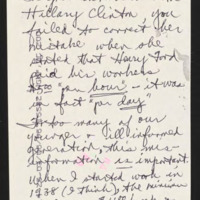 Hillary Clinton, you
failed to correct her
mistake when she
stated that Henry Ford
paid his workers
$5.00 "per hour" - it was
in fact "per day.
Too many of our
younger + ill informed
generation, this mis-
information is important.
When I started work in
1938 (I think), the minimum